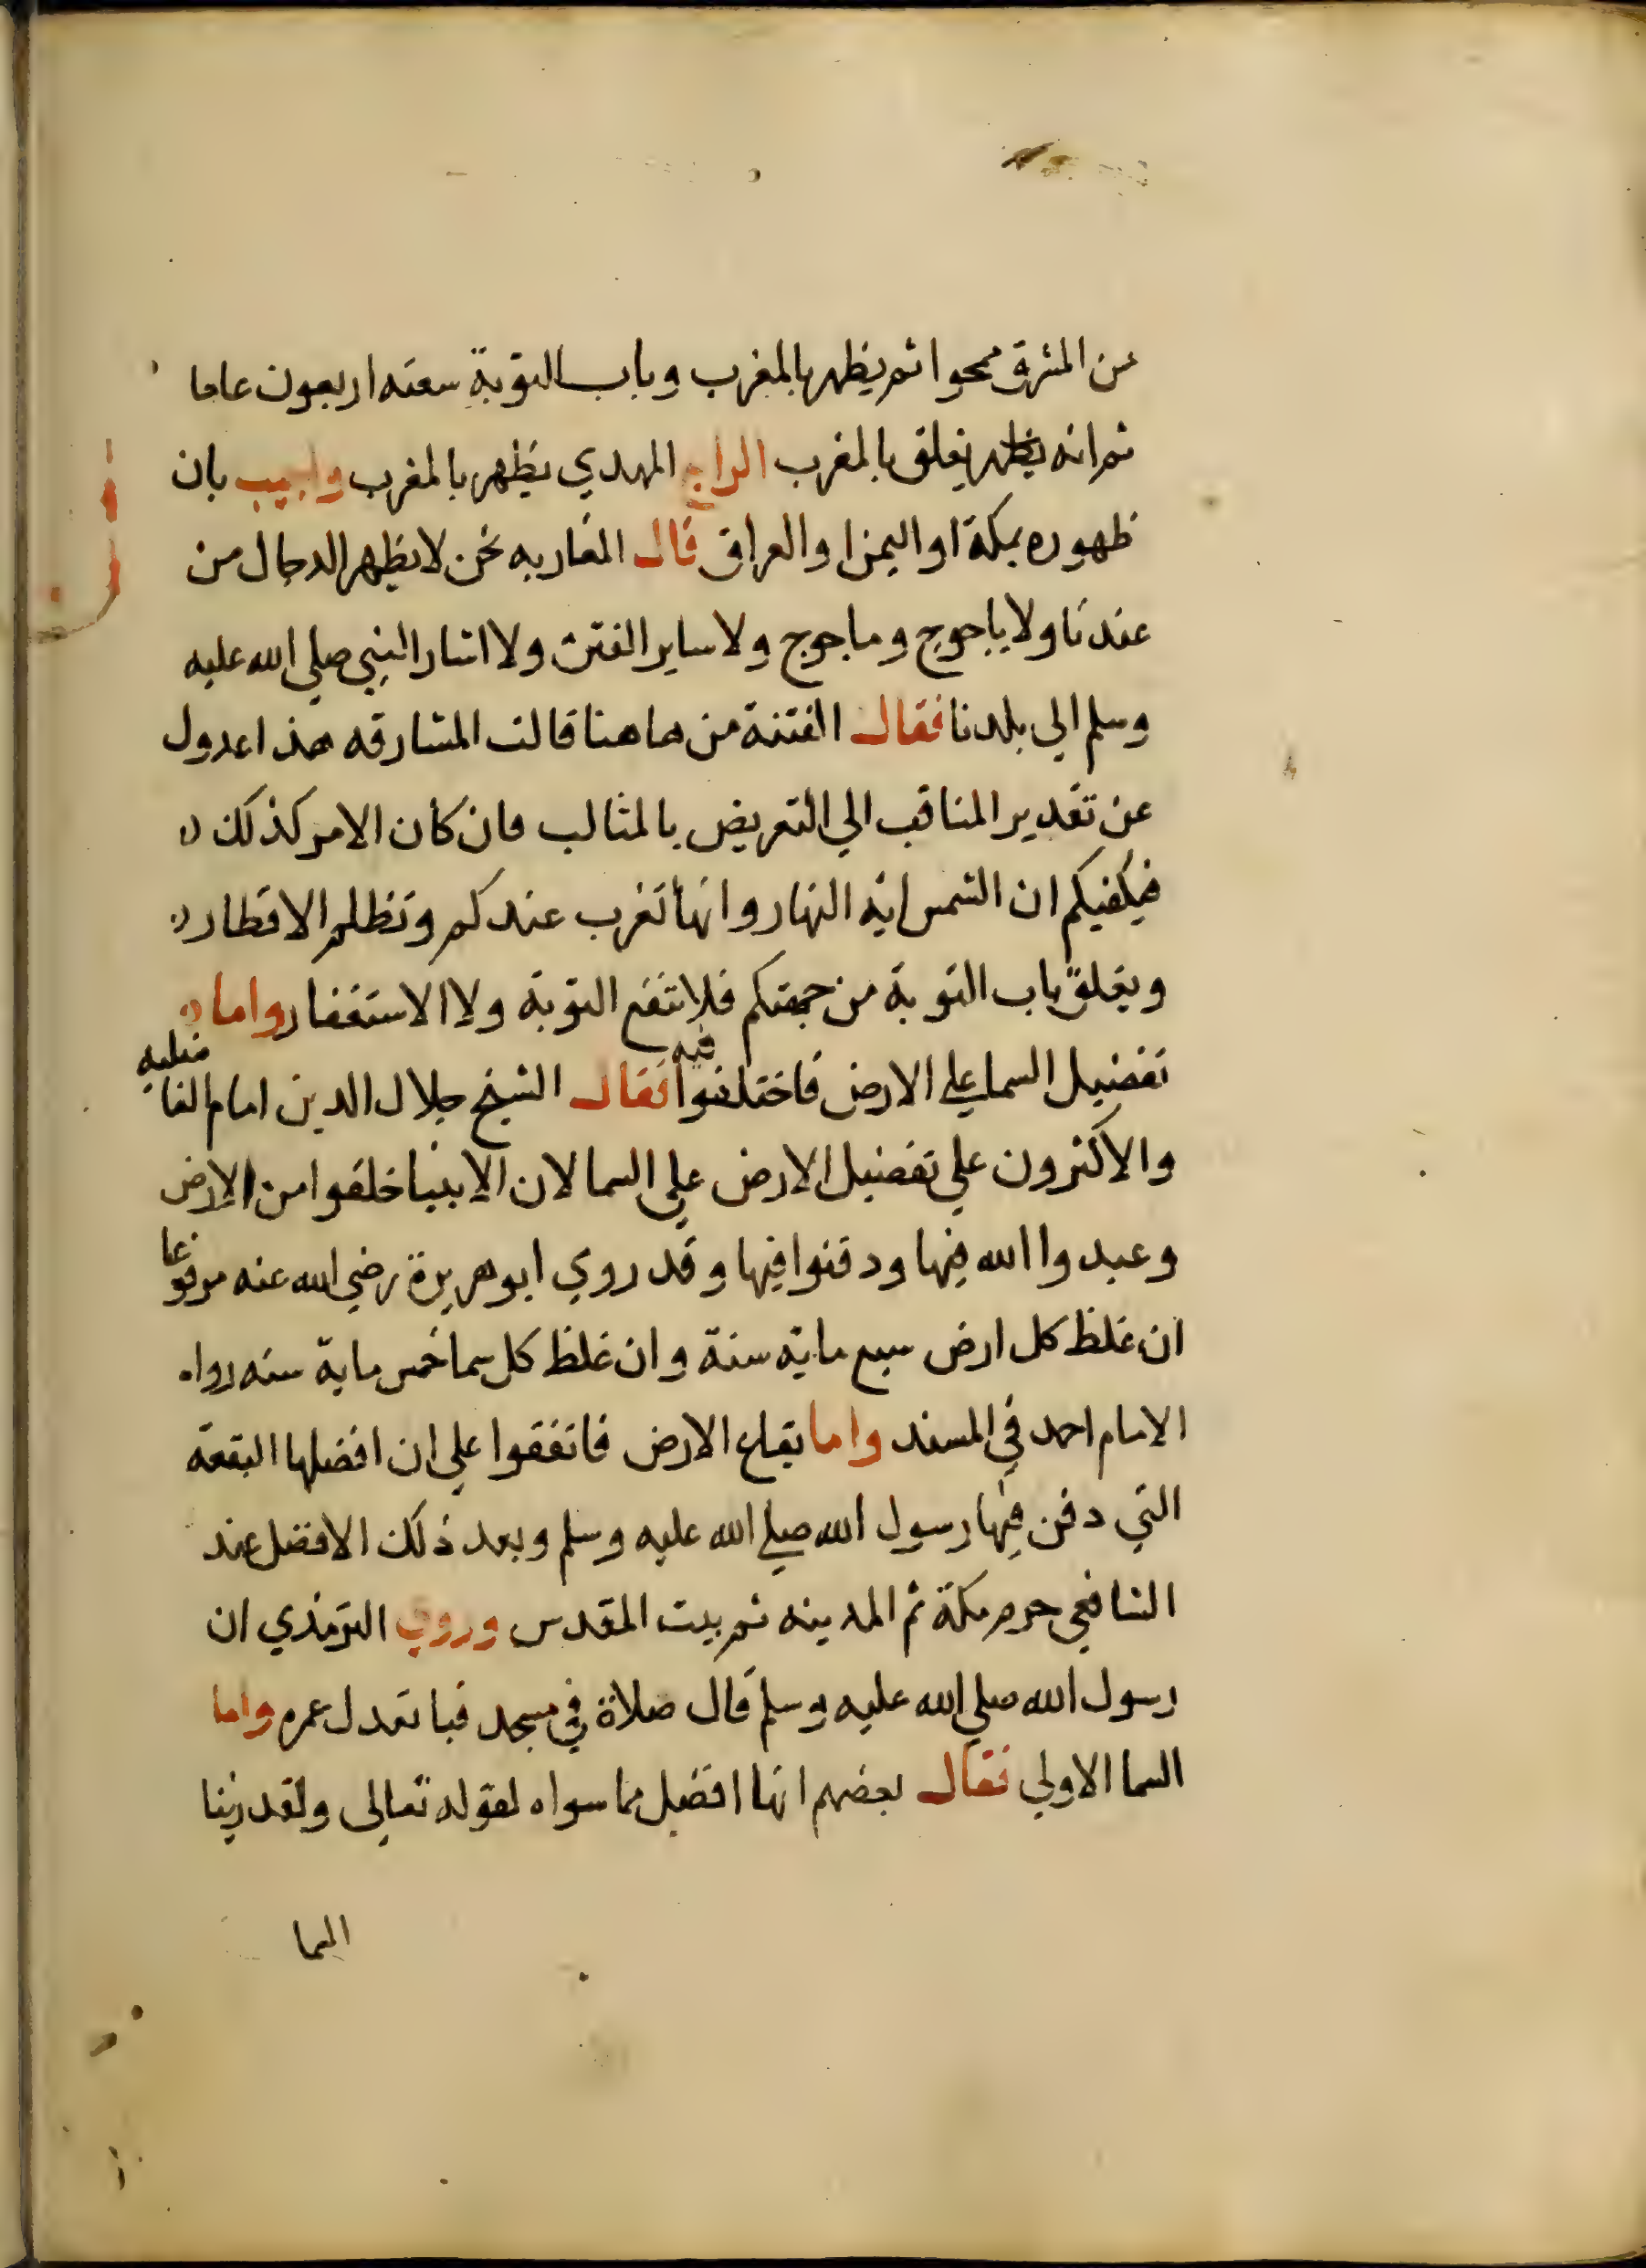 عن المشرق ممحوا ثم يظهر بالمغرب وباب التوبة سعته اربعون عاما
ثم انه يغلق بالمغرب الرابع المهدي يظهر بالمغرب واجيب بان
ظهوره بمكة او اليمن او العراق قال المغاربه نحن لا يظهر الدجال من
عندنا ولا ياجوج وماجوج ولا ساير الفتن ولا اشار النبي صلي الله عليه
وسلم الي بلدنا فقال الفتنة من هاهنا قالت المشارقه هذا عدول
عن تقدير المناقب الي التعريض بالمثالب فان كان الامر كذلك
فيكفيكم ان الشمس اية النهار وانها تغرب عندكم وتظلم الاقطار
ويغلق باب التوبة من جهتكم فلا تنفع التوبة ولا الاستغفار واما
تفضيل السما علي الارض فاختلفوا فيه فقال الشيخ جلال الدين امام الفاضليه
والاكثرون علي تفضيل الارض علي السما لان الانبيا خلقوا من الارض
وعبدوا الله فيها ودفنوا فيها وقد روي ابو هريرة رضي الله عنه مرفوعا
ان غلظ كل ارض سبع ماية سنة وان غلظ كل سما خمس ماية سنه رواه
الامام احمد في المسند واما بقاع الارض فاتفقوا علي ان افضلها البقعة
التي دفن فيها رسول الله صلي الله عليه وسلم وبعد ذلك الافضل عند
الشافعي حرم مكة ثم المدينه ثم بيت المقدس وروي الترمذي ان
رسول الله صلي الله عليه وسلم قال صلاة في مسجد قبا تعدل عمره واما
السما الاولي فقال بعضهم انها افضل مما سواه لقوله تعالي ولقد زينا
السما